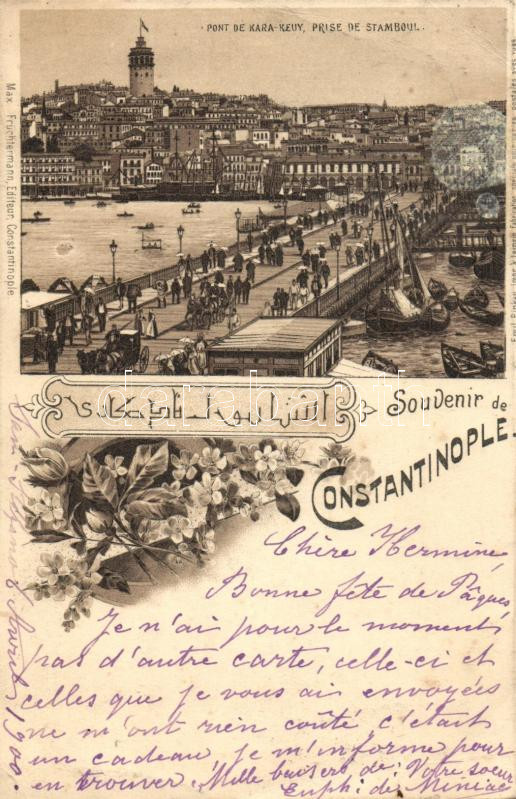 · PONT DE KARA-KEUY, PRISE DE STAMBOUL ·
Max Fruchtermann, Editeur, Constantinople
darabanth.com
Souvenir de
CONSTANTINOPLE.
Chère Hermine
Bonne fête de Pâques,
Je n'ai pour le moment
pas d'autre carte, celle-ci et
celles que je vous ai envoyées
ne m'ont rien coûté c'était
un cadeau, je m'informe pour
en trouver. Mille baisers de: Votre soeur
Euph: de
Avril 1900.